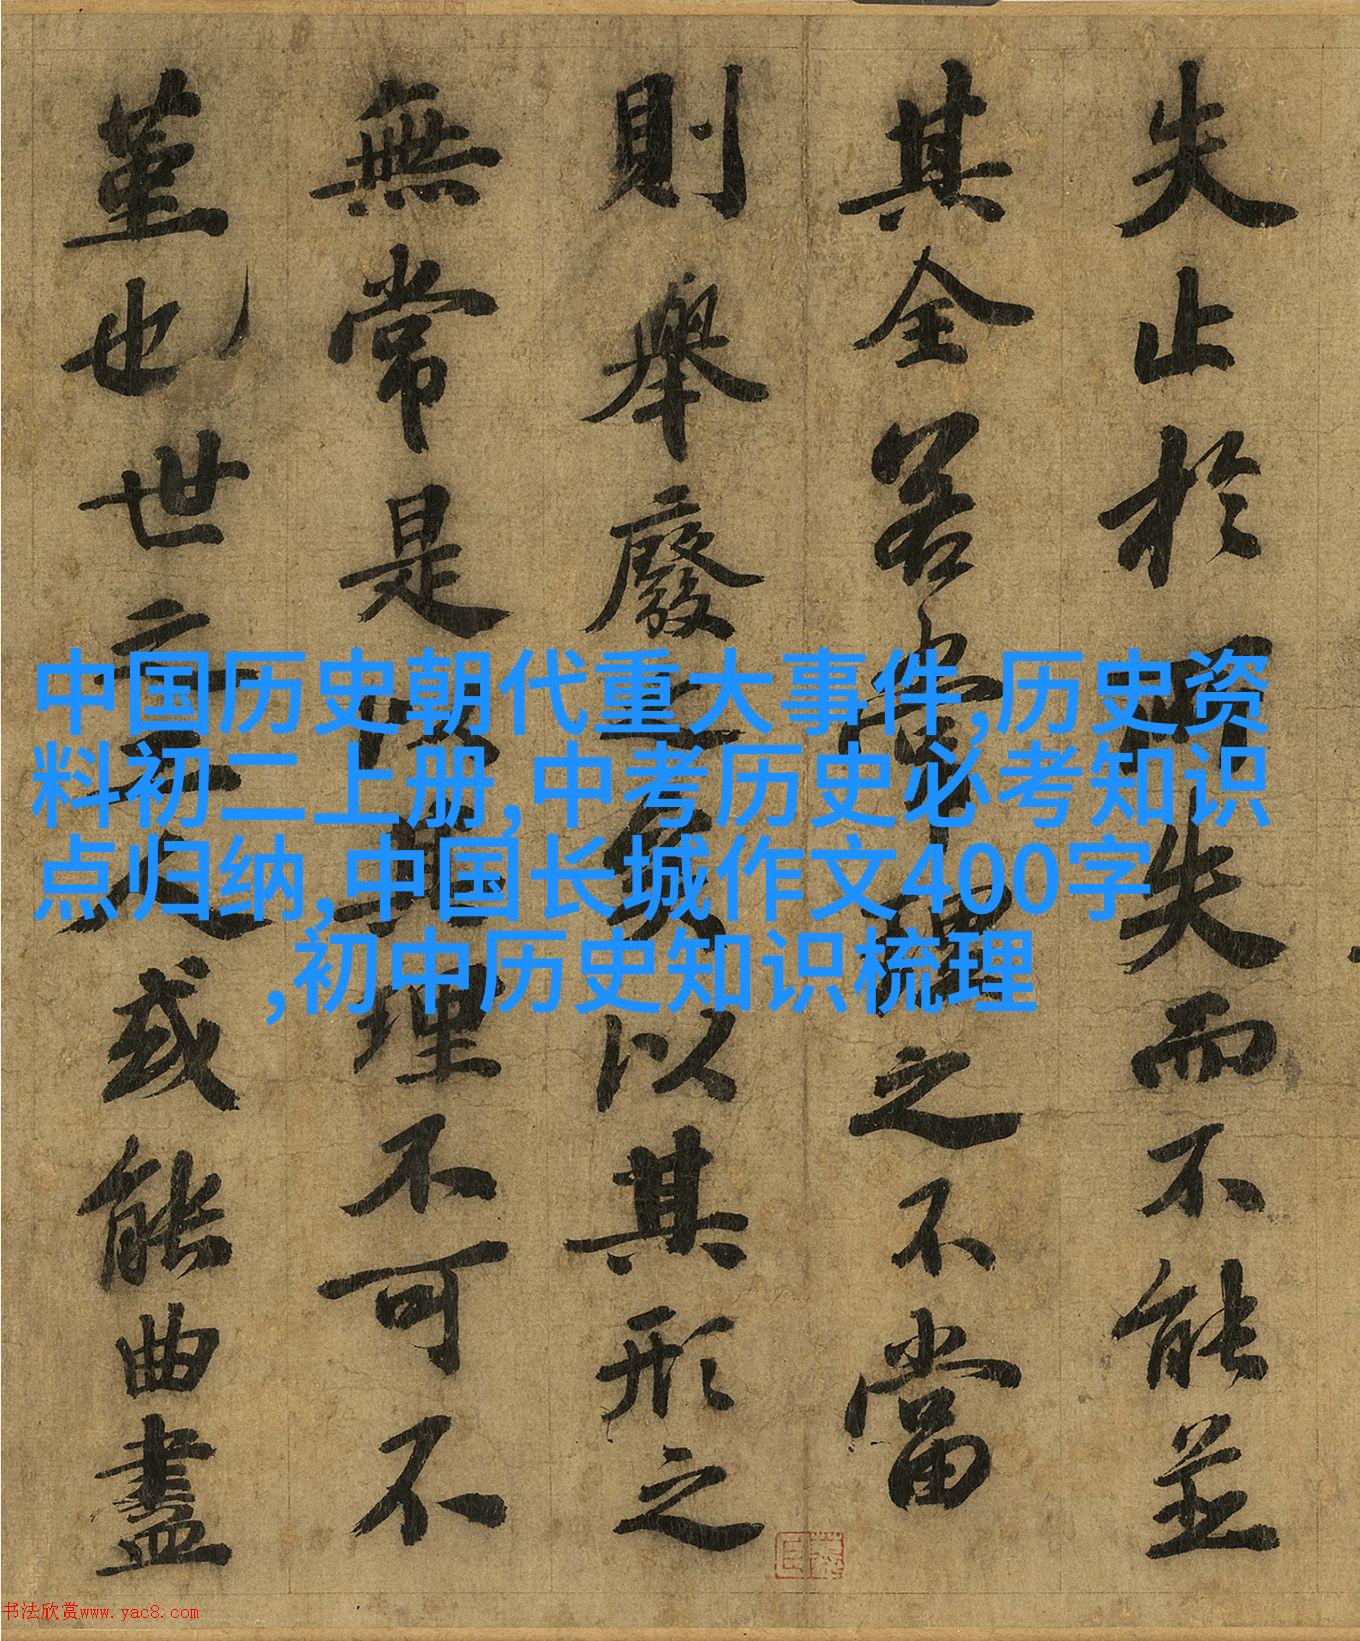 失止於所失而不能並
其全若常理之不當
則舉廢之矣以其形之
無常是以其理不可不
堇也世之工人或能曲盡
中国历史朝代重大事件,历史资
料初二上册,中考历史必考知识
点归纳,中国长城作文400字
,初中历史知识梳理
书法欣赏www.yac8.com